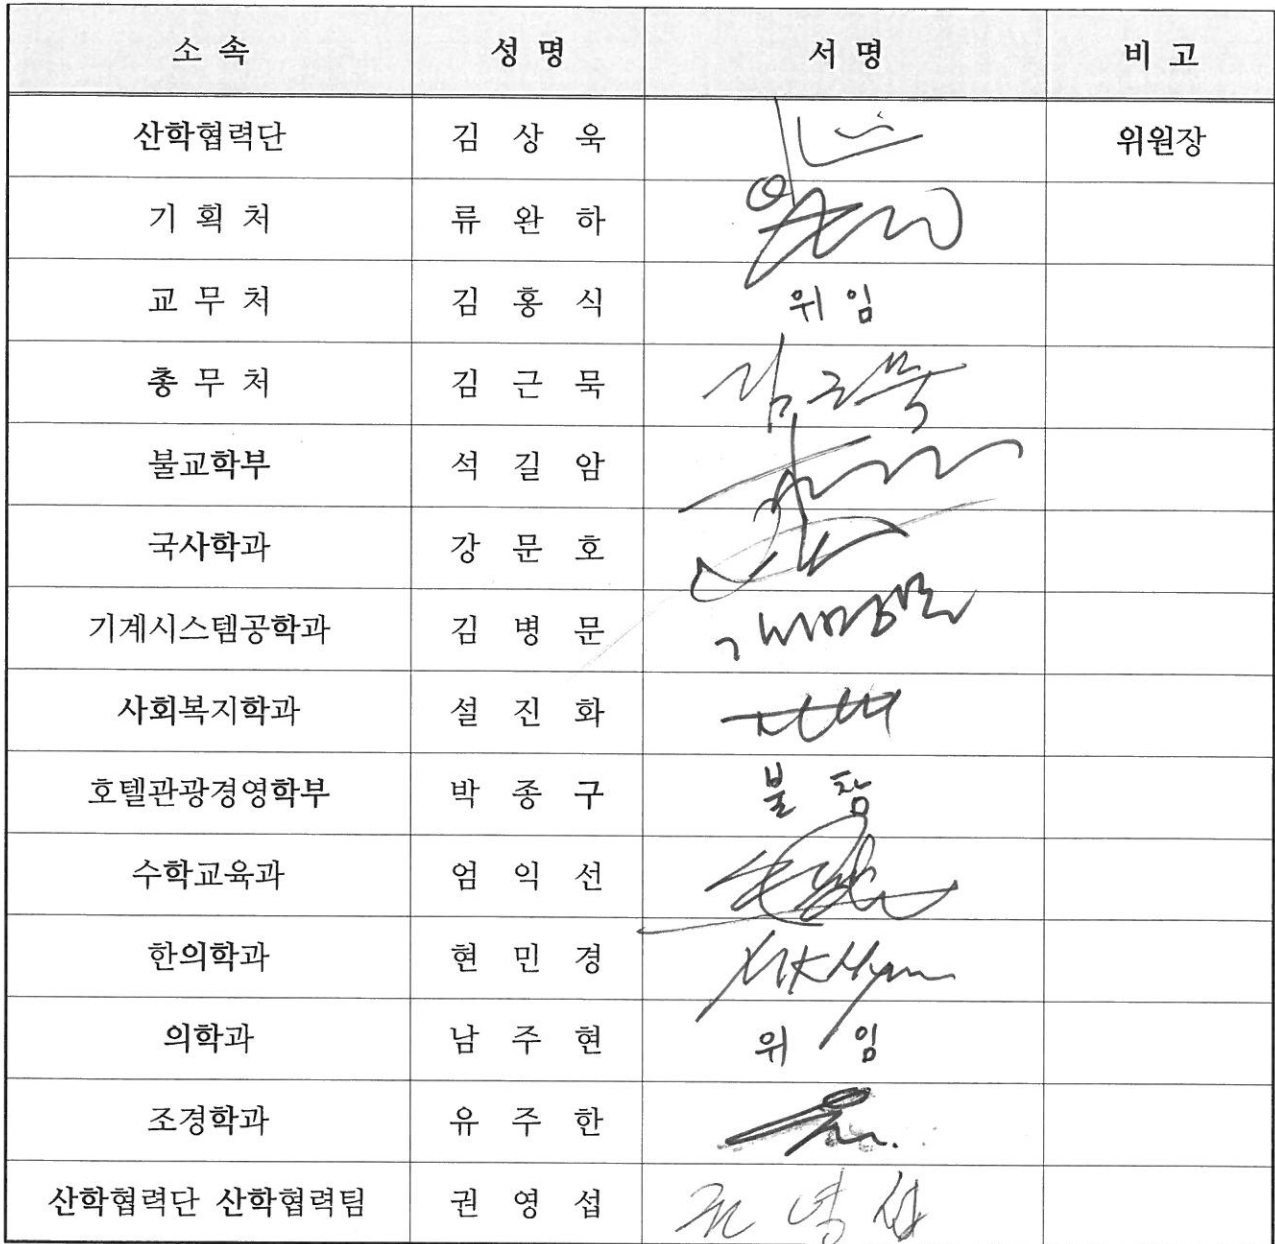 소 속 성 명 서 명 비 고
산학협력단 김 상 욱 위원장
기 획 처 류 완 하
교 무 처 김 홍 식 위 임
총 무 처 김 근 묵 김근묵
불교학부 석 길 암
국사학과 강 문 호
기계시스템공학과 김 병 문 김병문
사회복지학과 설 진 화
호텔관광경영학부 박 종 구 불 참
수학교육과 엄 익 선
한의학과 현 민 경 MKHyun
의학과 남 주 현 위 임
조경학과 유 주 한
산학협력단 산학협력팀 권 영 섭 권 영 섭